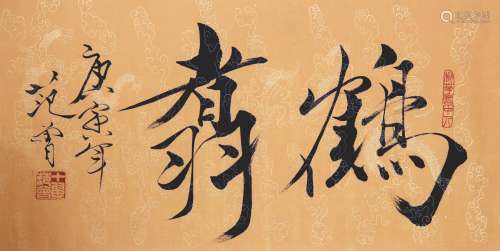 鶴翥
庚寅年
范曾